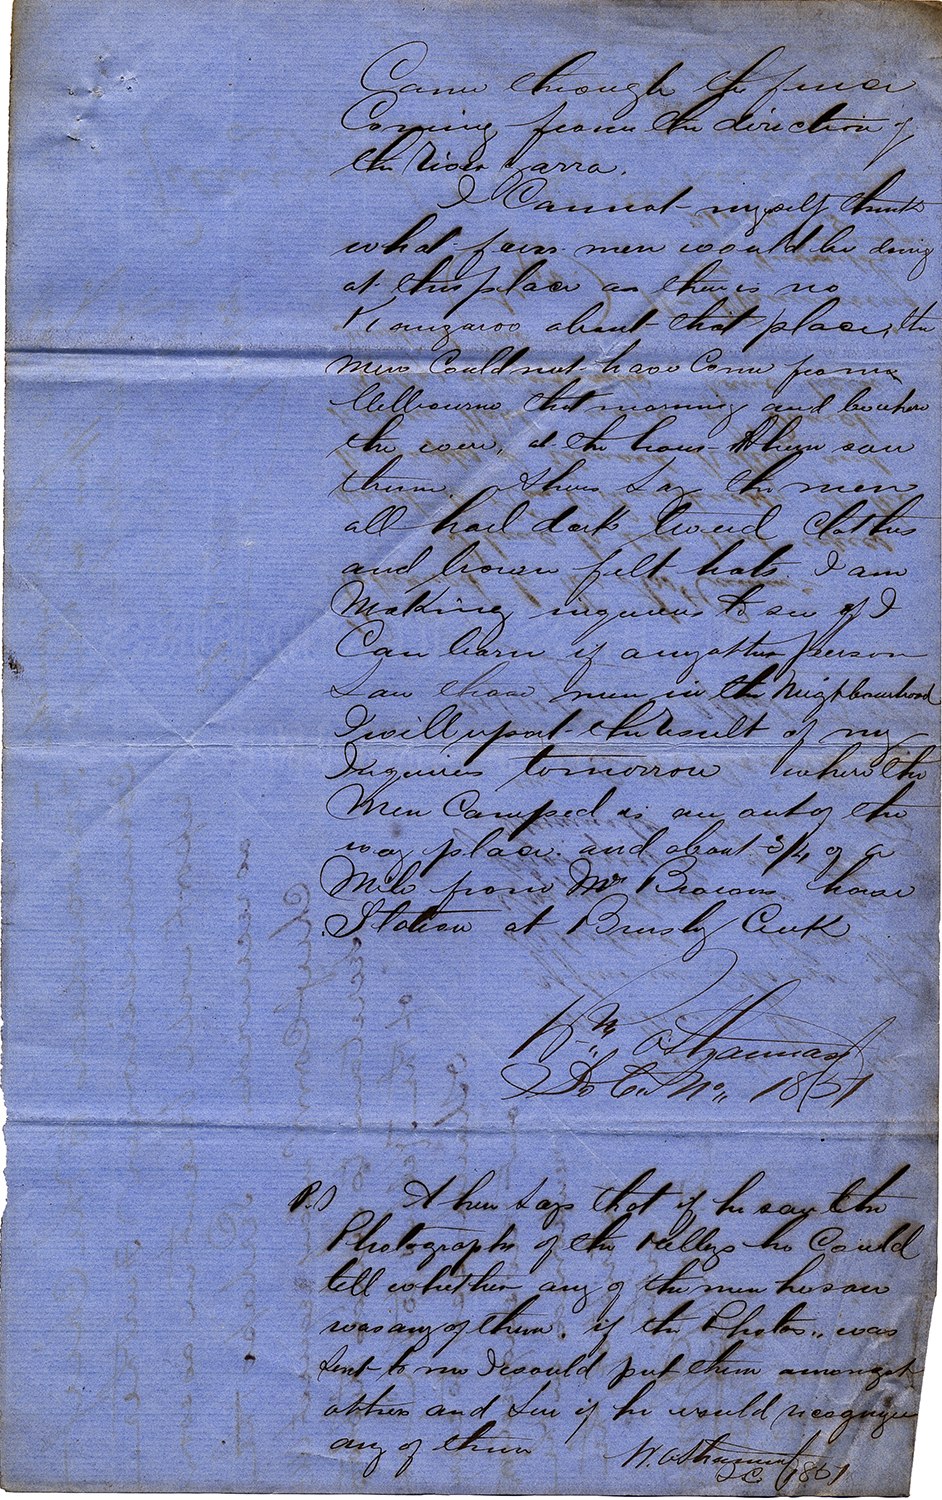 Came through the fence
Coming from the direction of
the River Yarra.
I Cannot myself think
what four men would be doing
at this place as there is no
Kangaroo about that place, the
men Could not have Come from
Melbourne that morning and be where
the were, at the hour Ahern saw
them. Ahern Say the men
all had dark tweed clothes
and brown felt hats. I am
Making inquiries to see if I
Can learn if any other person
Saw those men in the Neighbourhood
I will report the result of my
Inquiries tomorrow where the
Men Camped is an out of the
way place and about 3/4 of a
Mile from Mr Browns horse
Station at Brushy Creek
Wm O'Shannassy
S. C. No. 1867
P.S Ahern Says that if he saw the
Photographs of the Kellys he Could
tell whether any of the men he saw
was any of them. if the Photos,, was
Sent to me I would put them amongst
others and See if he would recognize
any of them
W. O'Shannassy
S.C. 1867